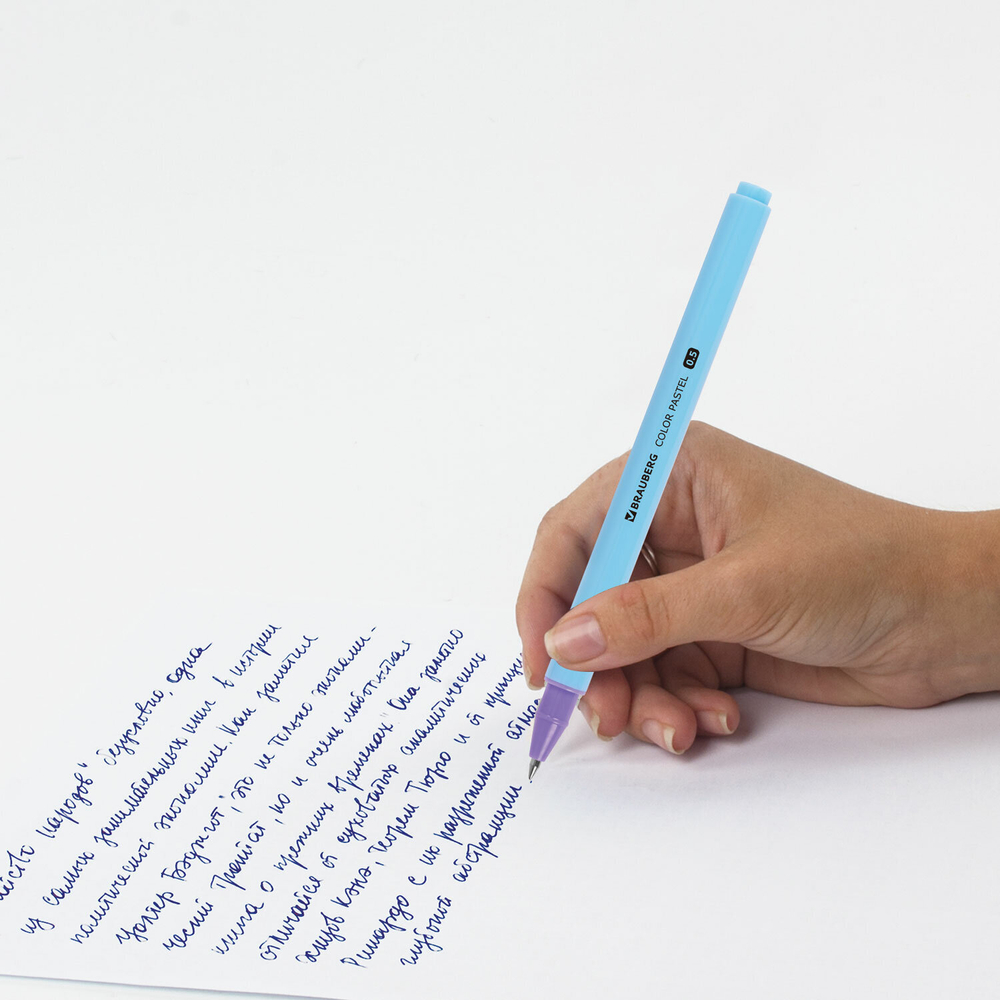 BRAUBERG COLOR PASTEL 0.5
народов" безусловно, одна
из самых занимательных книг в истории
политической экономии. Как заметил
Уолтер Бэджгот, "это не только экономи-
ческий трактат, но и очень любопытная
книга о прежних временах". Она заметно
отличается от суховатых аналитических
этюдов Кэнэ, теорем Тюрго и от
Рикардо с их разреженной
глубокой абстракции